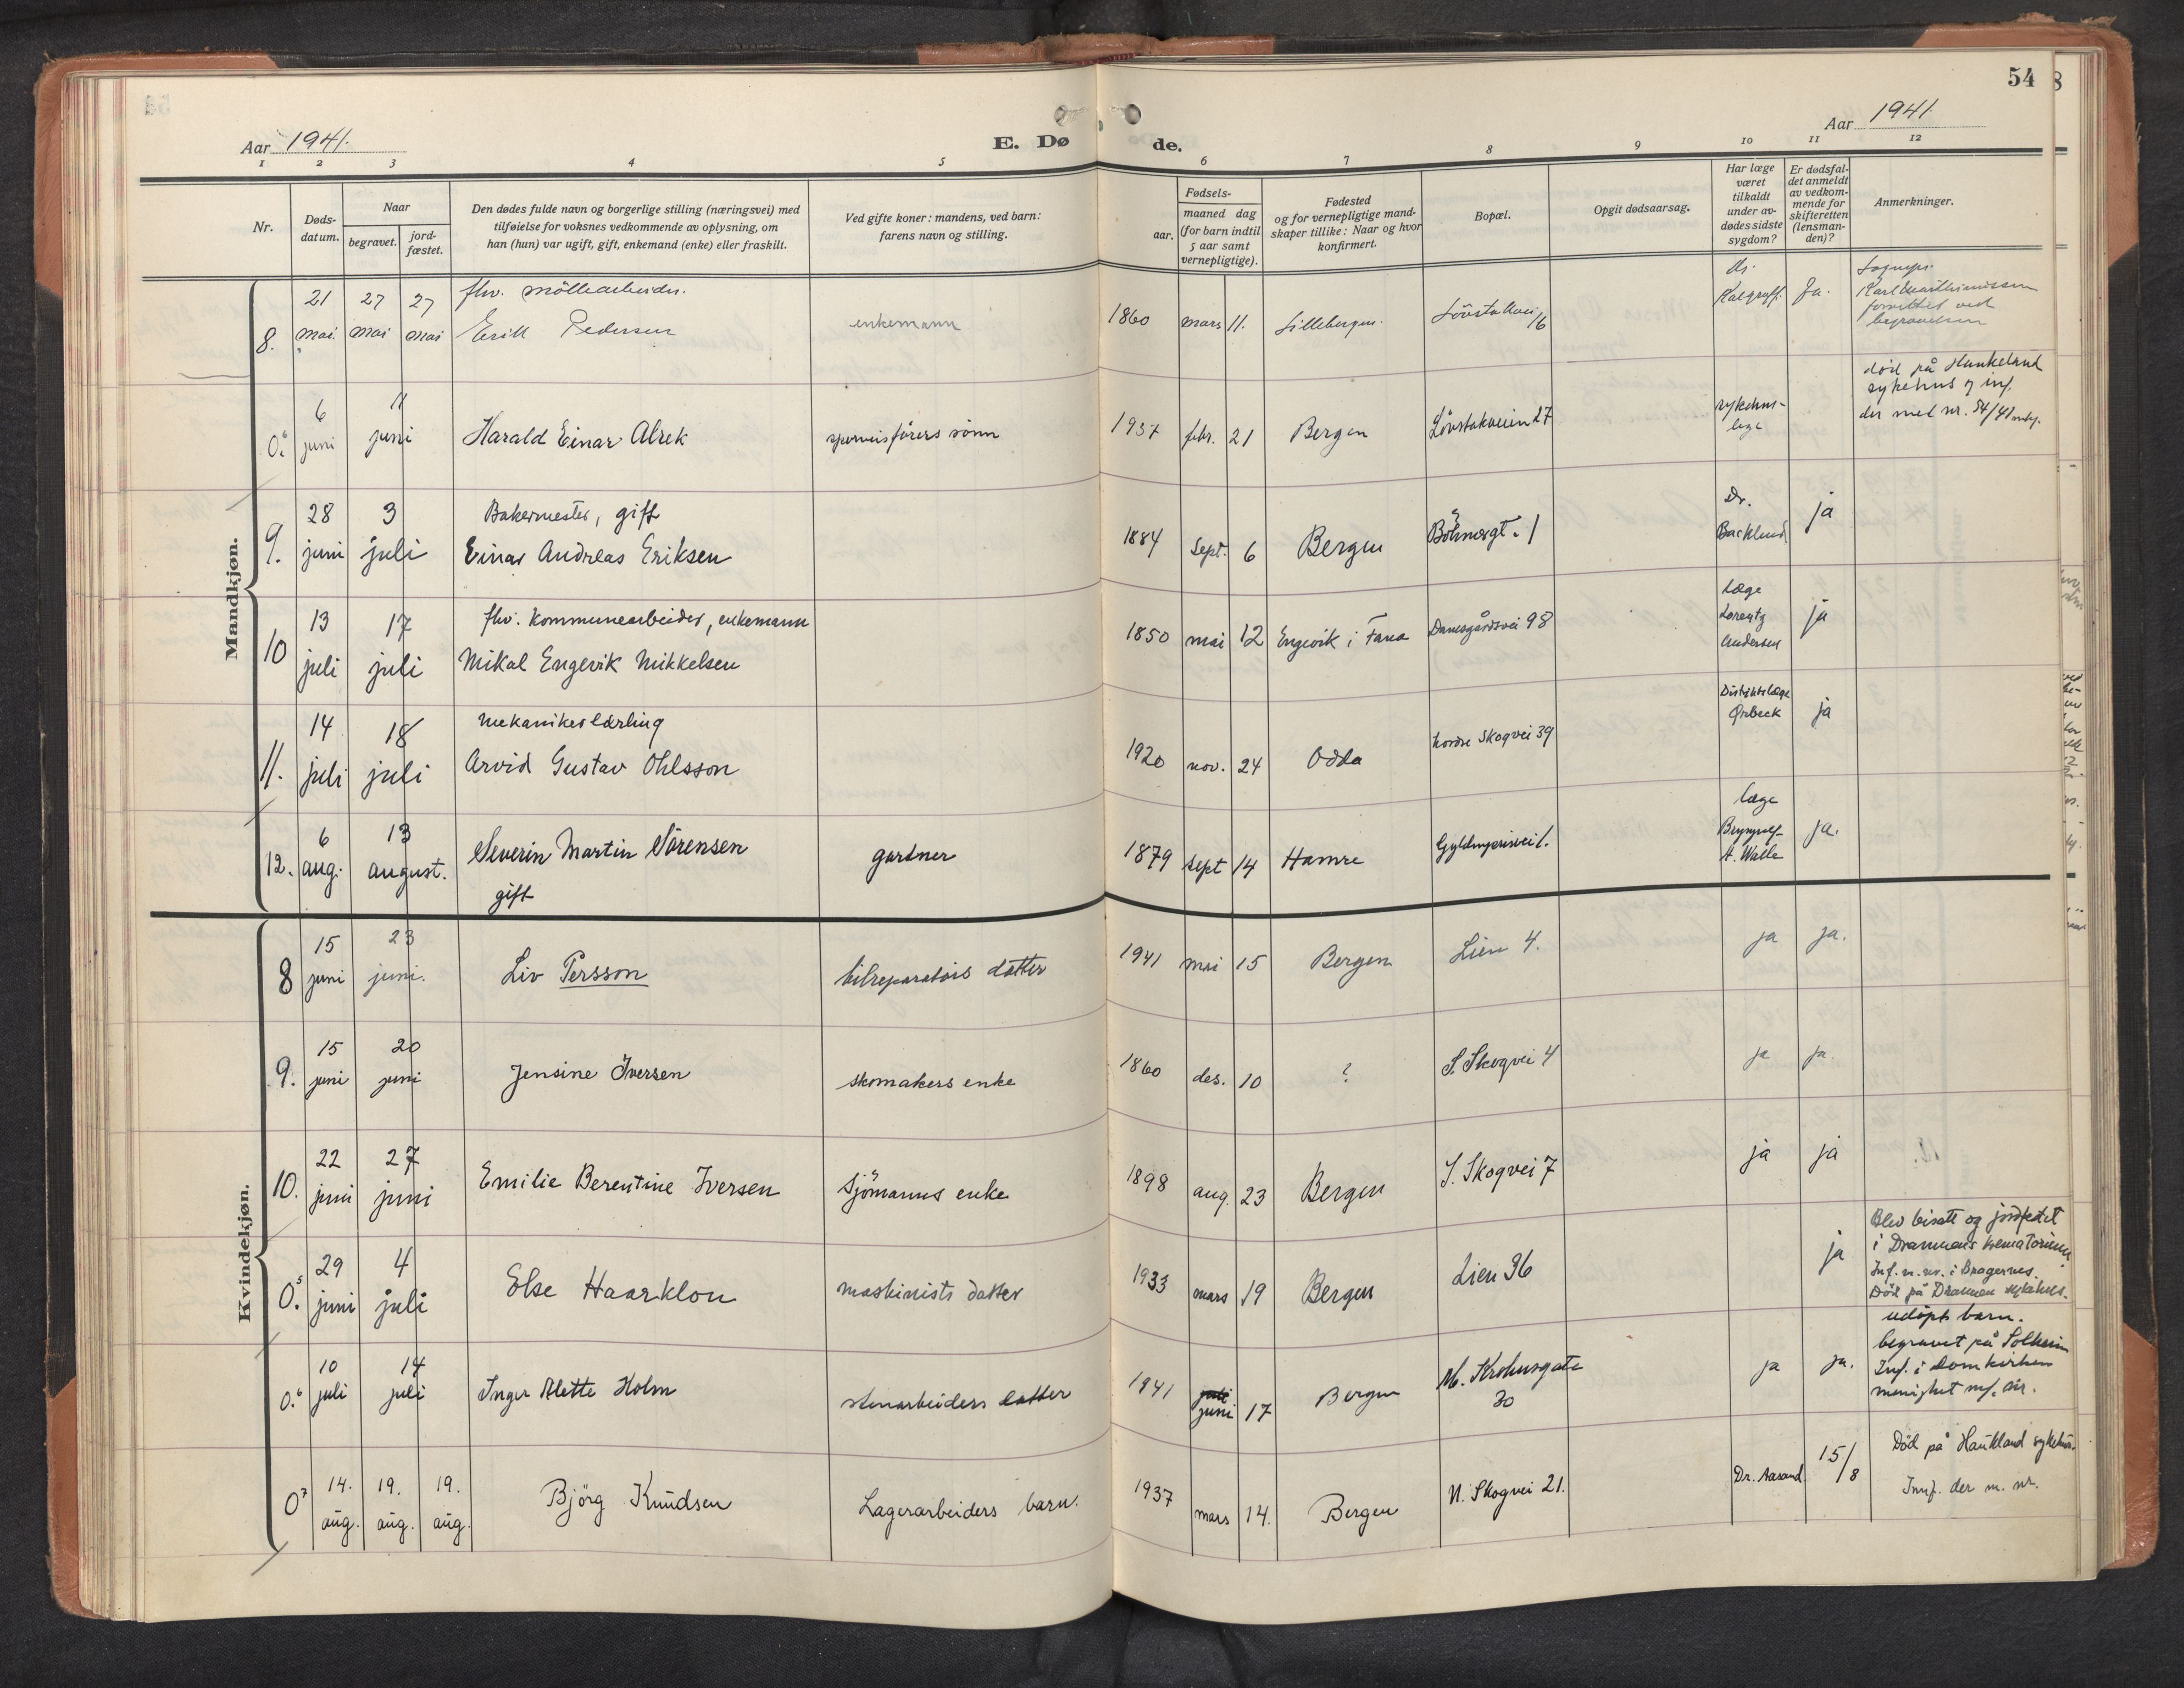 54
Aar 1941.
E. Døde.
Aar 1941
1 2 3 4 5 6 7 8 9 10 11 12
Nr.
Døds-datum.
Naar
begravet.
jord-fæstet.
Den dødes fulde navn og borgerlige stilling (næringsvei) med
tilføielse for voksnes vedkommende av oplysning, om
han (hun) var ugift, gift, enkemand (enke) eller fraskilt.
Ved gifte koner: mandens, ved barn:
farens navn og stilling.
Fødsels-
aar.
maaned dag
(for barn indtil
5 aar samt
vernepligtige).
Fødested
og for vernepligtige mand-
skaper tillike: Naar og hvor
konfirmert.
Bopæl.
Opgit dødsaarsag.
Har læge
været
tilkaldt
under av-
dødes sidste
sygdom?
Er dødsfal-
det anmeldt
av vedkom-
mende for
skifteretten
(lensman-
den)?
Anmerkninger.
Mandkjøn.
8. 21 mai 27 mai 27 mai
flv. møllearbeider.
Erik Pedersen
enkemann 1860 mars 11. Lillebergen. Lövstakvei 16
dr. Kalgraff. Ja.
Sognepr.
forrettet ved
begravelsen
0.6 6 juni 11 juni Harald Einar Alrek
sönn 1937 febr. 21 Bergen Lövstakveien 27
sykehus-
lege
död på Haukeland
sykehus og inf.
der med nr. 54/41
9. 28 juni 3 juli
Bakermester, gift
Einar Andreas Eriksen
1884 Sept. 6 Bergen Böhmergt. 1
Dr. Backlund ja
10 13 juli 17 juli
flv. kommunearbeider, enkemann
Mikal Engevik Mikkelsen
1850 mai 12 Engevik i Fana Damsgårdsvei 98
læge
Lorentz
Andersen ja
11. 14 juli 18 juli
mekanikerlærling
Arvid Gustav Ohlsson
1920 nov. 24 Odda Nordre Skogvei 39
Distriktslæge
Ørbeck ja
12. 6 aug. 13 august.
Severin Martin Sörensen
gift
gartner 1879 sept 14 Hamre Gyldenprisvei 1.
læge
Brynjulf
A. Walle ja.
Kvindekjøn.
8 15 juni 23 juni. Liv Persson bilreparatörs datter 1941 mai 15 Bergen Lien 4. ja ja.
9. 15 juni 20 juni Jensine Iversen skomakers enke 1860 des. 10 ? S. Skogvei 4 ja ja.
10. 22 juni 27 juni Emilie Berentine Iversen sjömanns enke 1898 aug. 23 Bergen S. Skogvei 7 ja ja
0.5 29 juni 4 juli Else Haarklou maskinists datter 1933 mars 19 Bergen Lien 36 ja
Blev bisatt og jordfestet
i Drammens krematorium.
Inf. u. nr. i Bragernes.
Död på Drammen sykehus.
0.6 10 juli 14 juli Inger Alette Holm stenarbeiders datter 1941 juli juni 17 Bergen M. Krohnsgate 30 ja ja.
udöpt barn.
begravet på Solheim
Inf. i Domkirken
menighet
0.7 14. aug. 19. aug. 19. aug. Björg Knudsen Lagerarbeiders barn. 1937 mars 14. Bergen N. Skogvei 21. Dr. Aasand 15/8
Död på Haukland sykehus.
Innf. der m. nr.